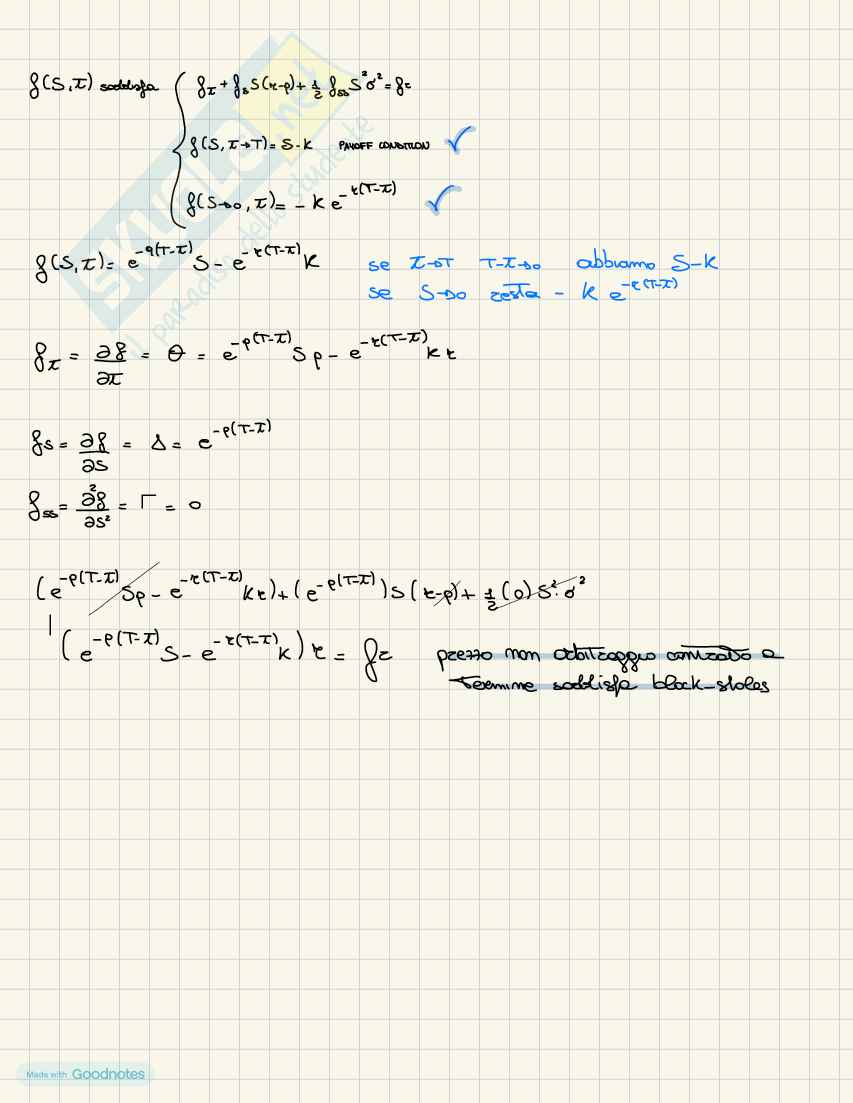 f(S,τ) soddisfa { f_τ + f_s S(r-ρ) + 1/2 f_ss S² σ² = fr
f(S, τ→T) = S-K PAYOFF CONDITION ✓
f(S→0, τ) = - K e^{-r(T-τ)} ✓
f(S,τ) = e^{-q(T-τ)} S - e^{-r(T-τ)} K se τ→T T-τ→0 abbiamo S-K
se S→0 resta - K e^{-r(T-τ)}
f_τ = ∂f/∂τ = θ = e^{-ρ(T-τ)} Sρ - e^{-r(T-τ)} K r
f_s = ∂f/∂s = Δ = e^{-ρ(T-τ)}
f_ss = ∂²f/∂s² = Γ = 0
(e^{-ρ(T-τ)} Sρ - e^{-r(T-τ)} K r) + (e^{-ρ(T-τ)}) S (r-ρ) + 1/2 (0) S² · σ²
(e^{-ρ(T-τ)} S - e^{-r(T-τ)} K) r = fr prezzo non arbitraggio contratto a
termine soddisfa block-sholes
SKUOLA.net
il paradiso dello studente
Made with Goodnotes